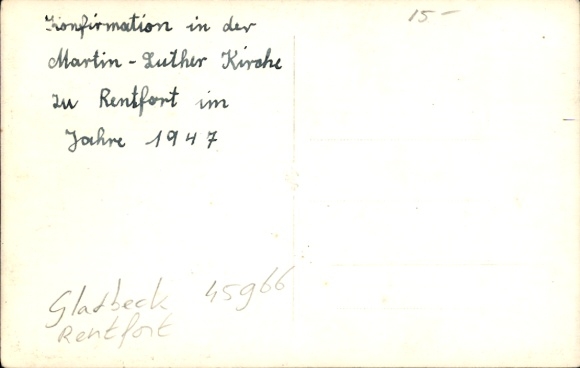 15-
Konfirmation in der
Martin-Luther Kirche
zu Rentfort im
Jahre 1947
Gladbeck 45966
Rentfort